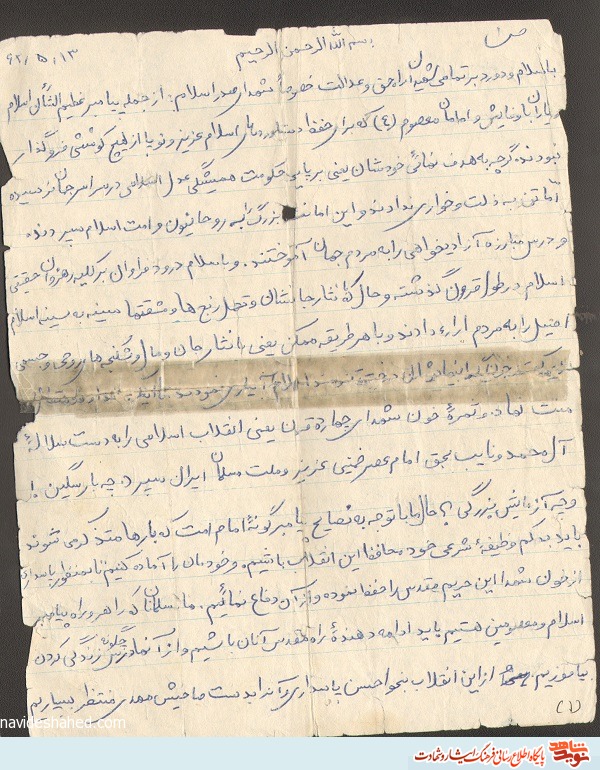 بسم الله الرحمن الرحیم
۶۲/۵/۱۳
باسلام و درود بر تمامی شهیدان راه حق و عدالت خصوصاً شهدای صدر اسلام: از جمله پیامبر عظیم الشأن اسلام
و یاران باوفایش و امامان معصوم (ع) که برای حفظ دستاوردهای اسلام عزیز و نوپا از هیچ کوششی فروگذار
نبودند. گرچه به هدف نهائی خودشان یعنی برپایی حکومت همیشگی عدل اسلامی در سراسر جهان نرسیده
اما تن به ذلت و خواری ندادند و این امانت بزرگ را به روحانیون و امت اسلام سپردند
و درس مبارزه آزادیخواهی را به مردم جهان آموختند. و باسلام و درود فراوان بر کلیه رهروان حقیقی
اسلام در طول قرون گذشته و حال که با نثار جانشان و تحمل رنج ها و مشقتها سینه به سینه اسلام
اصیل را به مردم ارائه دادند و با هر طریقه ممکن یعنی با نثار جان و مال و شکنجه های روحی و جسمی
درخت اسلام آبیاری نمودند
و ثمرۀ خون شهدای چهارده قرن یعنی انقلاب اسلامی را به دست سلالۀ
آل محمد و نایب بحق امام عصر خمینی عزیز و ملت مسلمان ایران سپرد، چه بار سنگین!
و چه آزمایش بزرگی؟ حال ما با توجه به نصایح پیامبرگونۀ امام امت که بارها متذکر می شوند
باید به حکم وظیفۀ شرعی خود محافظ این انقلاب باشیم. و خودمان را آماده کنیم تا بمنظور پاسداری
از خون شهدا این حریم مقدس را حفظ نموده و از آن دفاع نمائیم. ما مسلمانان که راهرو راه پیامبر
اسلام و معصومین هستیم باید ادامه دهندۀ راه مقدس آنان باشیم و از آنها درس چگونه زندگی کردن
بیاموزیم از این انقلاب بنحو احسن پاسداری تا آنرا بدست صاحبش مهدی منتظر بسپاریم
(۱)
navideshahed.com
نوید شاهد
پایگاه اطلاع رسانی فرهنگ ایثار و شهادت